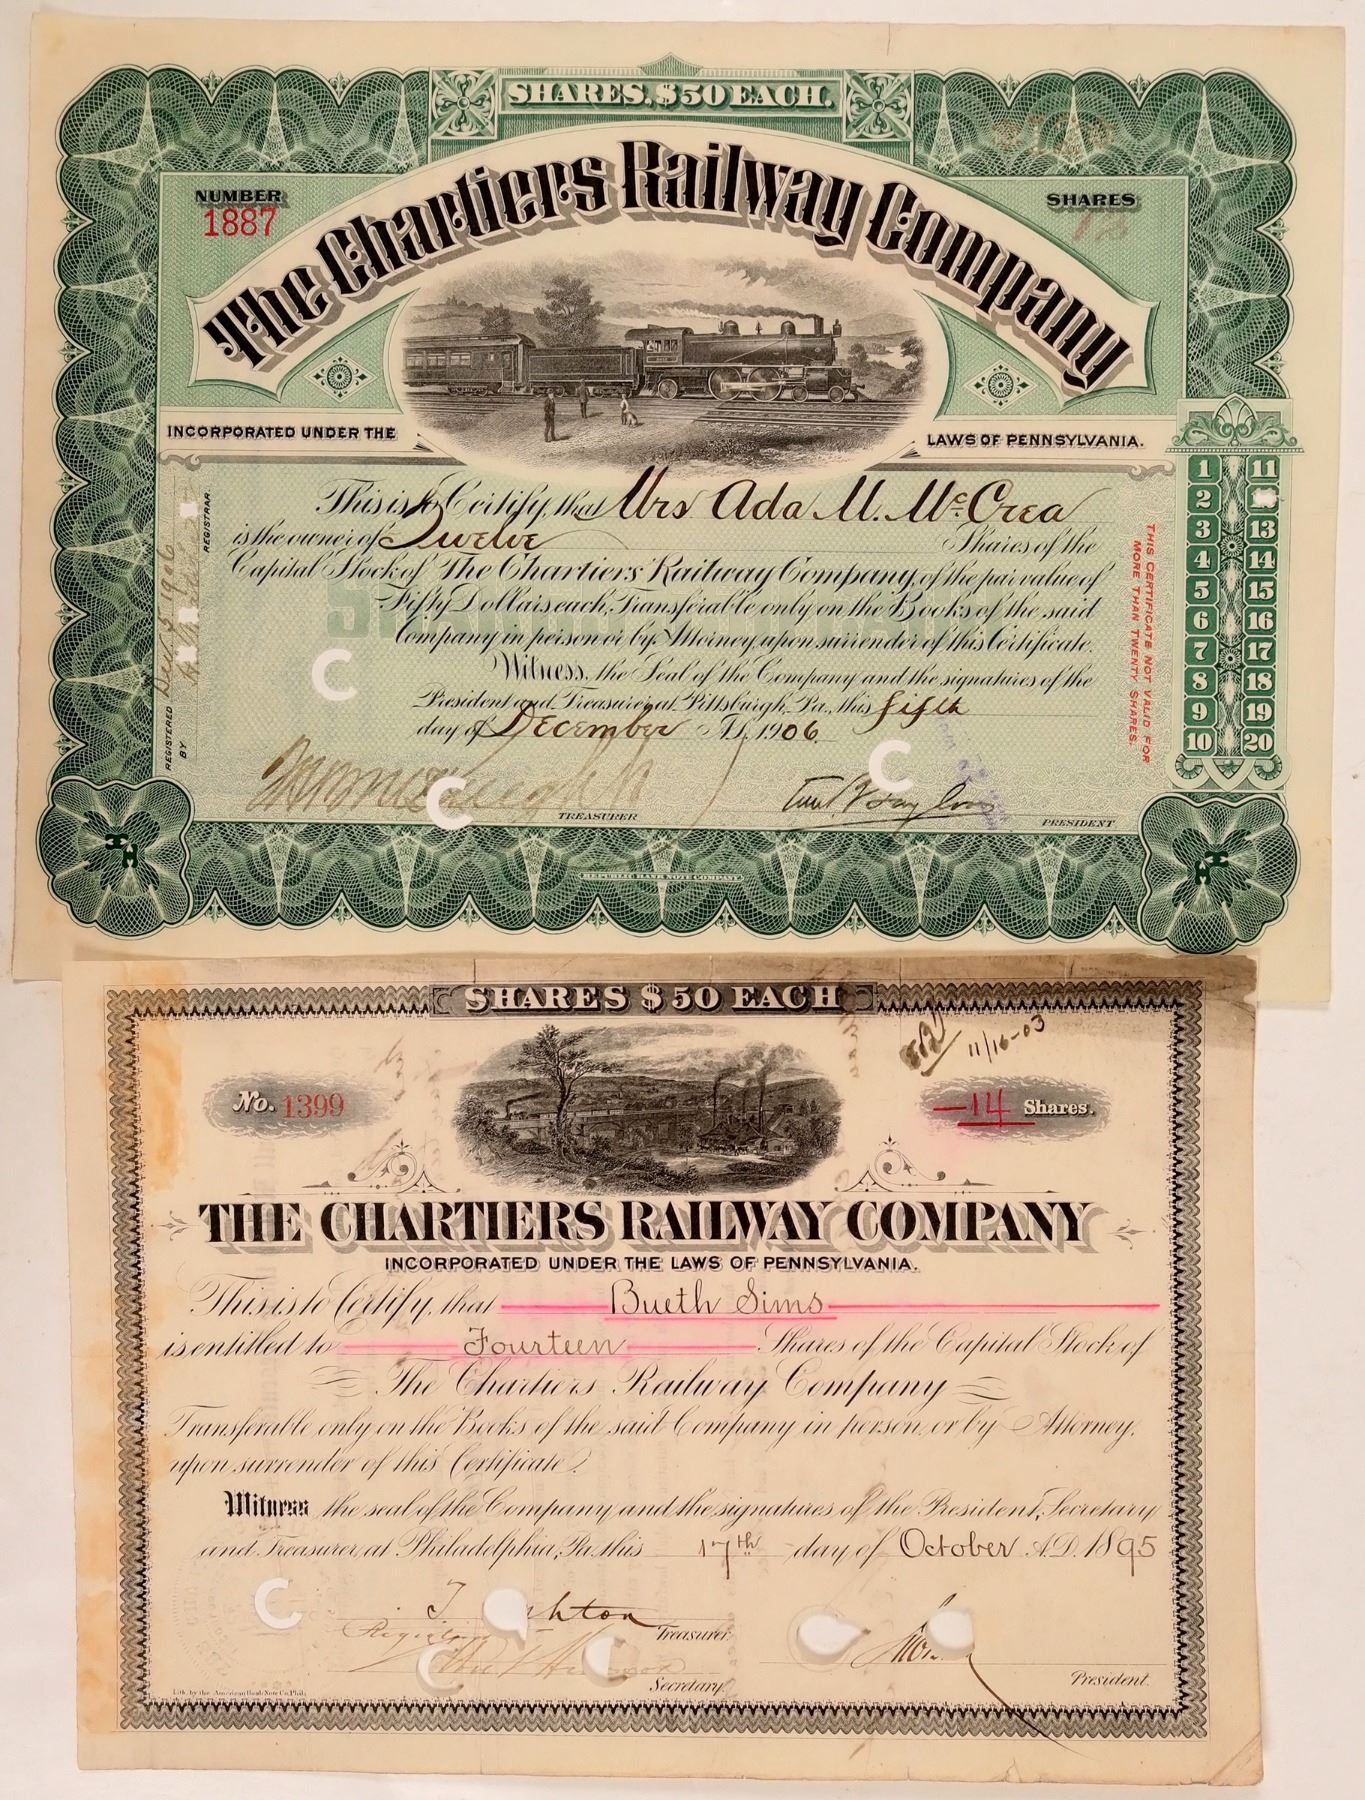 SHARES, $50 EACH.
NUMBER
1887
SHARES
12
The Chartiers Railway Company
INCORPORATED UNDER THE
LAWS OF PENNSYLVANIA.
This is to Certify, that Mrs Ada M. McCrea
is the owner of Twelve Shares of the
Capital Stock of The Chartiers Railway Company, of the par value of
Fifty Dollars each, Transferable only on the Books of the said
Company in person or by Attorney upon surrender of this Certificate.
Witness, the Seal of the Company and the signatures of the
President and Treasurer at Pittsburgh, Pa., this fifth
day of December A.D. 1906.
TREASURER
PRESIDENT
REPUBLIC BANK NOTE COMPANY
REGISTERED Dec 5 1906
BY
REGISTRAR.
THIS CERTIFICATE NOT VALID FOR
MORE THAN TWENTY SHARES.
1 11
2
3 13
4 14
5 15
6 16
7 17
8 18
9 19
10 20
SHARES $50 EACH
11/16-03
No. 1399
14 Shares.
THE CHARTIERS RAILWAY COMPANY
INCORPORATED UNDER THE LAWS OF PENNSYLVANIA.
This is to Certify, that Bueth Sims
is entitled to Fourteen Shares of the Capital Stock of
The Chartiers Railway Company
Transferable only on the Books of the said Company in person, or by Attorney,
upon surrender of this Certificate.
Witness the seal of the Company and the signatures of the President, Secretary
and Treasurer, at Philadelphia, Pa. this 17th day of October A.D. 1895
Treasurer.
Secretary.
President.
Lith. by the American Bank Note Co. Phila.